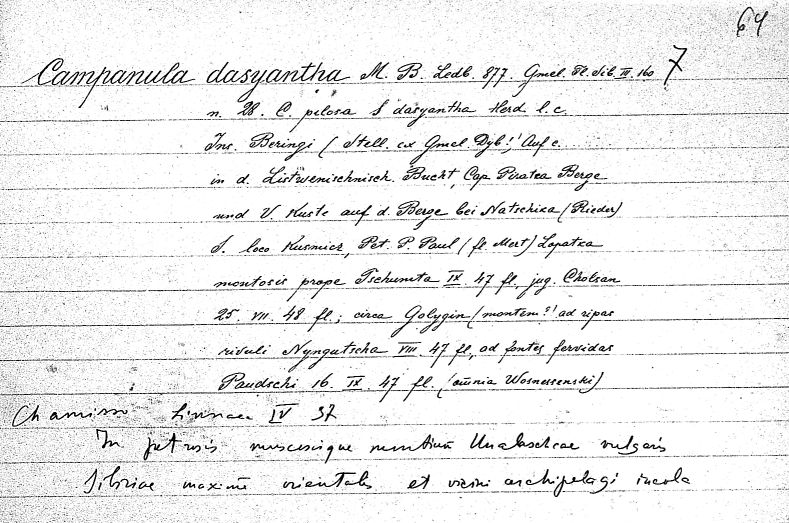 64
Campanula dasyantha M. B. Ledb. 877. Gmel. Fl. Sib. III. 160 7
n. 28. C. pilosa δ dasyantha Herd l. c.
Ins. Beringi (Stell. ex Gmel. Dyb!) Auf e.
in d. Listwenischnisch. Bucht, Cap Piratea Berge
und V. Kuste auf d. Berge bei Natschika (Rieder)
S. loco Kusmicz, Pet. P. Paul (fl. Mert) Lopatka
montosis prope Tschumta IX 47 fl, jug. Cholsan
25. VII. 48 fl.; circa Golygin (montem?) ad ripas
rivuli Nyngutscha VIII 47 fl, ad fontes fervidas
Paudschi 16. IX. 47 fl. (omnia Wosnessenski)
Chamisso Linnaea IV 37
In petrosis muscosisque montium Unalaschcae vulgaris
Sibiriae maxime orientalis et vicini archipelagi incola